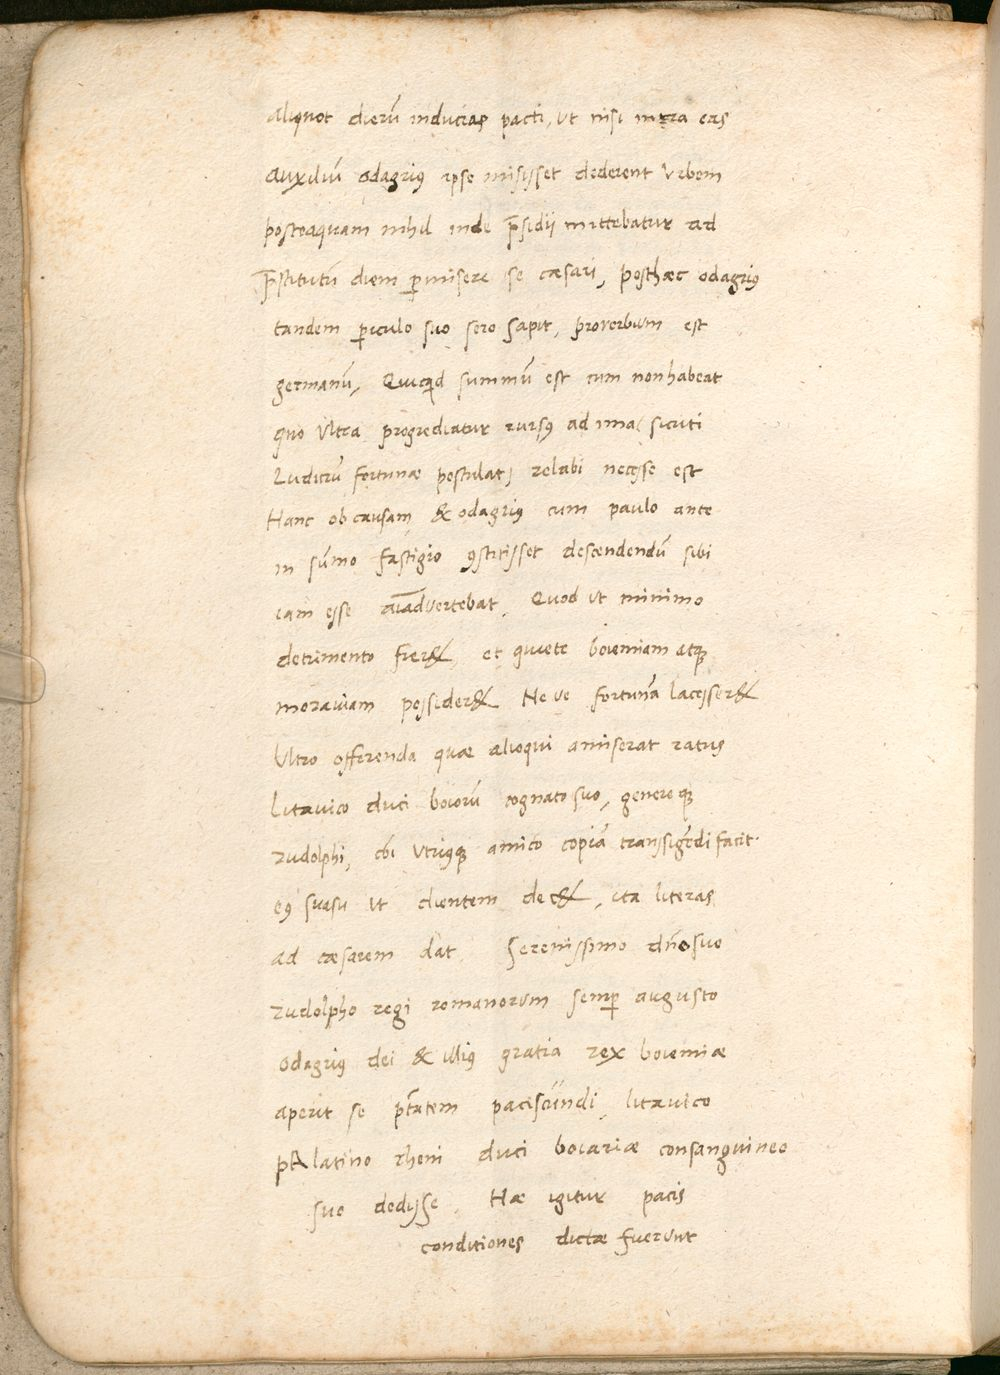 aliquot dierū inducias pacti, ut nisi intra eas
auxiliū odagrius ipse misisset dederent Urbem
posteaquam nihil inde p̄sidii mittebatur ad
p̄stitutū diem ꝑmisere se cæsari, posthæc odagrius
tandem ꝑiculo suo sero sapit, proverbium est
germanū, Quicquid summū est cum non habeat
quo Ultra progrediatur rursꝰ ad ima, sicuti
Ludicrū fortunæ postulat, relabi necesse est
Hanc ob causam & odagriꝰ cum paulo ante
in sūmo fastigio ꝯstitisset descendendū sibi
eam esse aīadvertebat, Quod ut minimo
detrimento fier&, et quiete boiemiam atqꝫ
moraviam possider& Neve fortunā lacesser&
Ultro offerenda quæ alioqui amiserat ratus
Litavico duci boiorū cognato suo, generoqꝫ
rudolphi, Utriusqꝫ amico copiā transsigēdi facit.
eꝰ suasu ut clientem dec&, ita literas
ad cæsarem dat, Serenissimo dn̄o suo
rudolpho regi romanorum semꝑ augusto
odagriꝰ dei & illiꝰ gratia rex boiemiæ
aperit se ptātem paciscūndi, litavico
pAlatino rheni duci boiariæ consanguineo
suo dedisse, Hæ igitur pacis
conditiones dictæ fuerunt